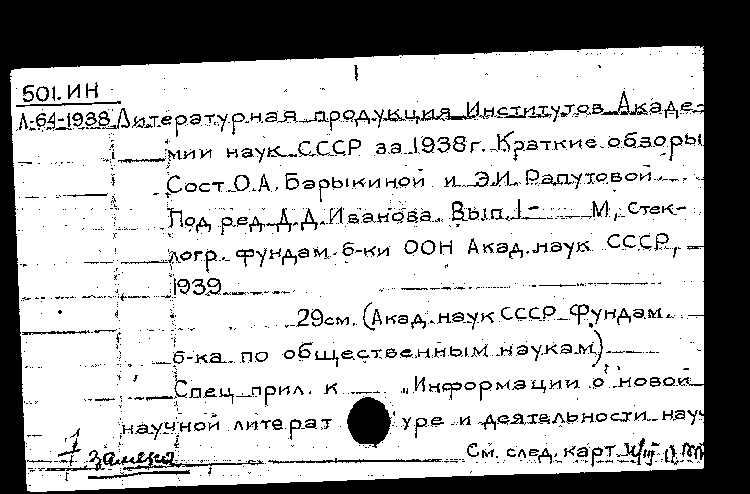 501.ИН
Л-64-1938 Литературная продукция Институтов Акаде-
мии наук СССР за 1938г. Краткие обзоры
Сост. О.А. Барыкиной и Э.И. Рапутовой.
Под ред. Д.Д. Иванова. Вып. 1- М, Стек-
логр. фундам. б-ки ООН Акад. наук СССР,
1939
29см. (Акад. наук СССР Фундам.
б-ка по общественным наукам)
Спец прил. к „Информации о новой
научной литературе и деятельности науч
7 замена См. след. карт.